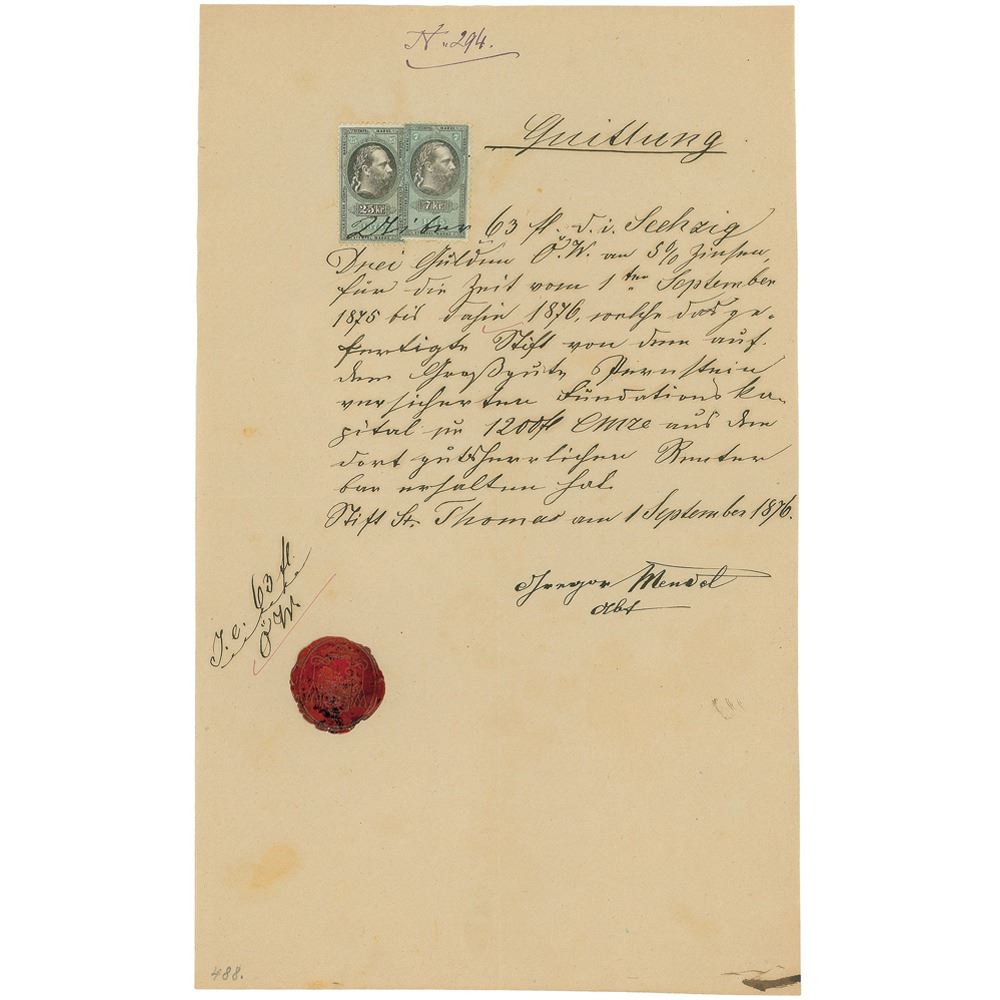 N. 294.
Quittung
25 Kr
7 Kr
Über 63 fl. d. i. Sechzig
Drei Gulden Ö. W. an 5% Zinsen,
für die Zeit vom 1ten September
1875 bis dahin 1876, welche das ge-
fertigte Stift von dem auf
dem Großgute Pernstein
versicherten Fundations Ka-
pital pr 1200 fl CMze aus den
dort gutsherrlichen Renten
bar erhalten hat.
Stift St. Thomas am 1 September 1876.
Gregor Mendel
Abt
63 fl.
Ö W.
488.